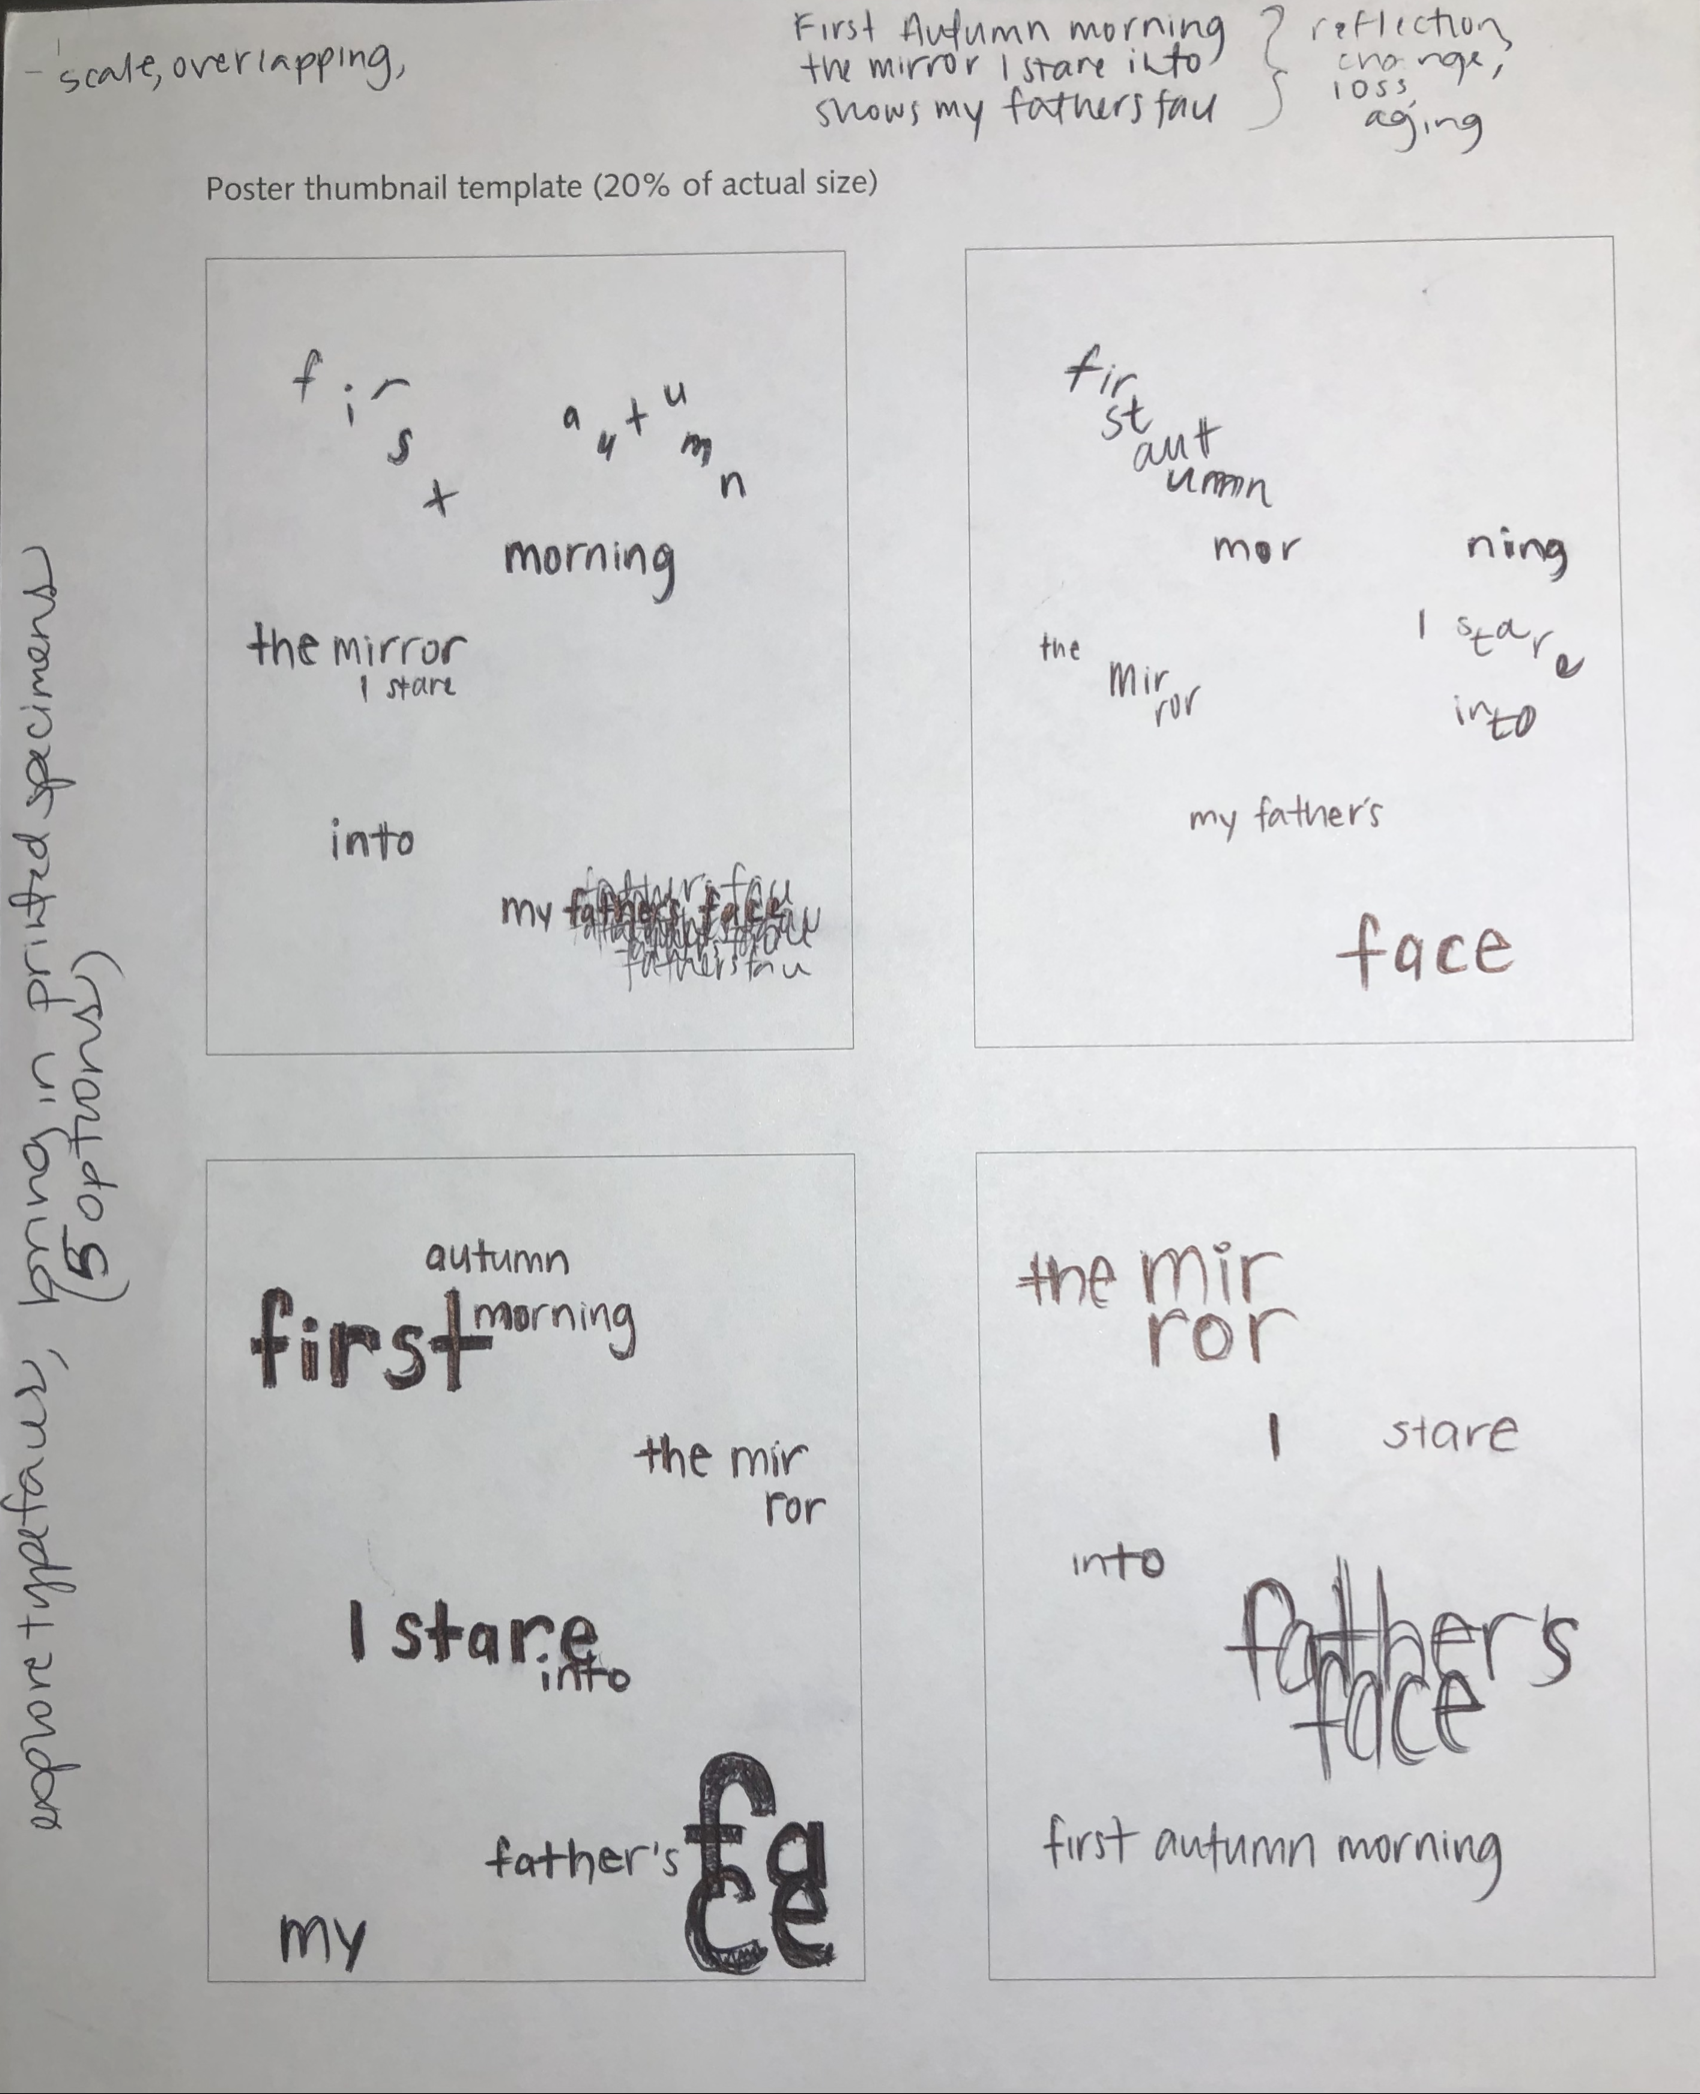 - scale, overlapping,
First Autumn morning
the mirror I stare into
shows my fathers face
reflection,
change,
loss,
aging
Poster thumbnail template (20% of actual size)
first autumn
morning
the mirror
I stare
into
my father's face
fathers face
fir
st
aut
umn
mor ning
the mir
ror
I stare
into
my father's
face
autumn
first morning
the mir
ror
I stare
into
father's fa
ce
my
the mir
ror
I stare
into
father's
face
first autumn morning
explore typefaces, bring in printed specimens
(5 options)